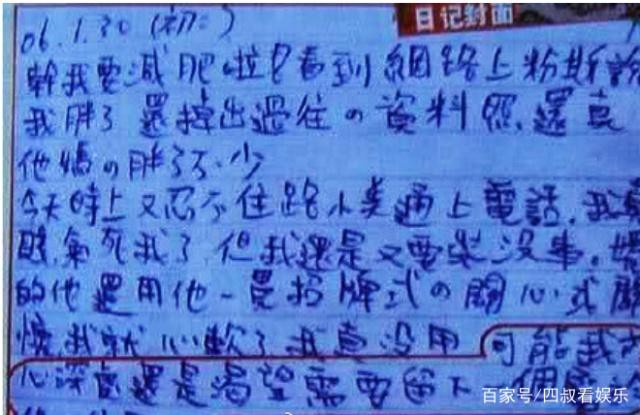 日记封面
06.1.30(初二)
幹我要減肥啦!看到網路上粉斯說
我胖了 還掉出過往の資料照,還真
他媽の胖了不少
今天晚上又忍不住跟小 通上電話,我
氣死我了,但我還是又要裝沒事。媽
的他還用他一貫招牌式の關心,式關
懷,我就心軟了,我真沒用,可能我內
心深處還是渴望需要留下
百家号/四叔看娱乐